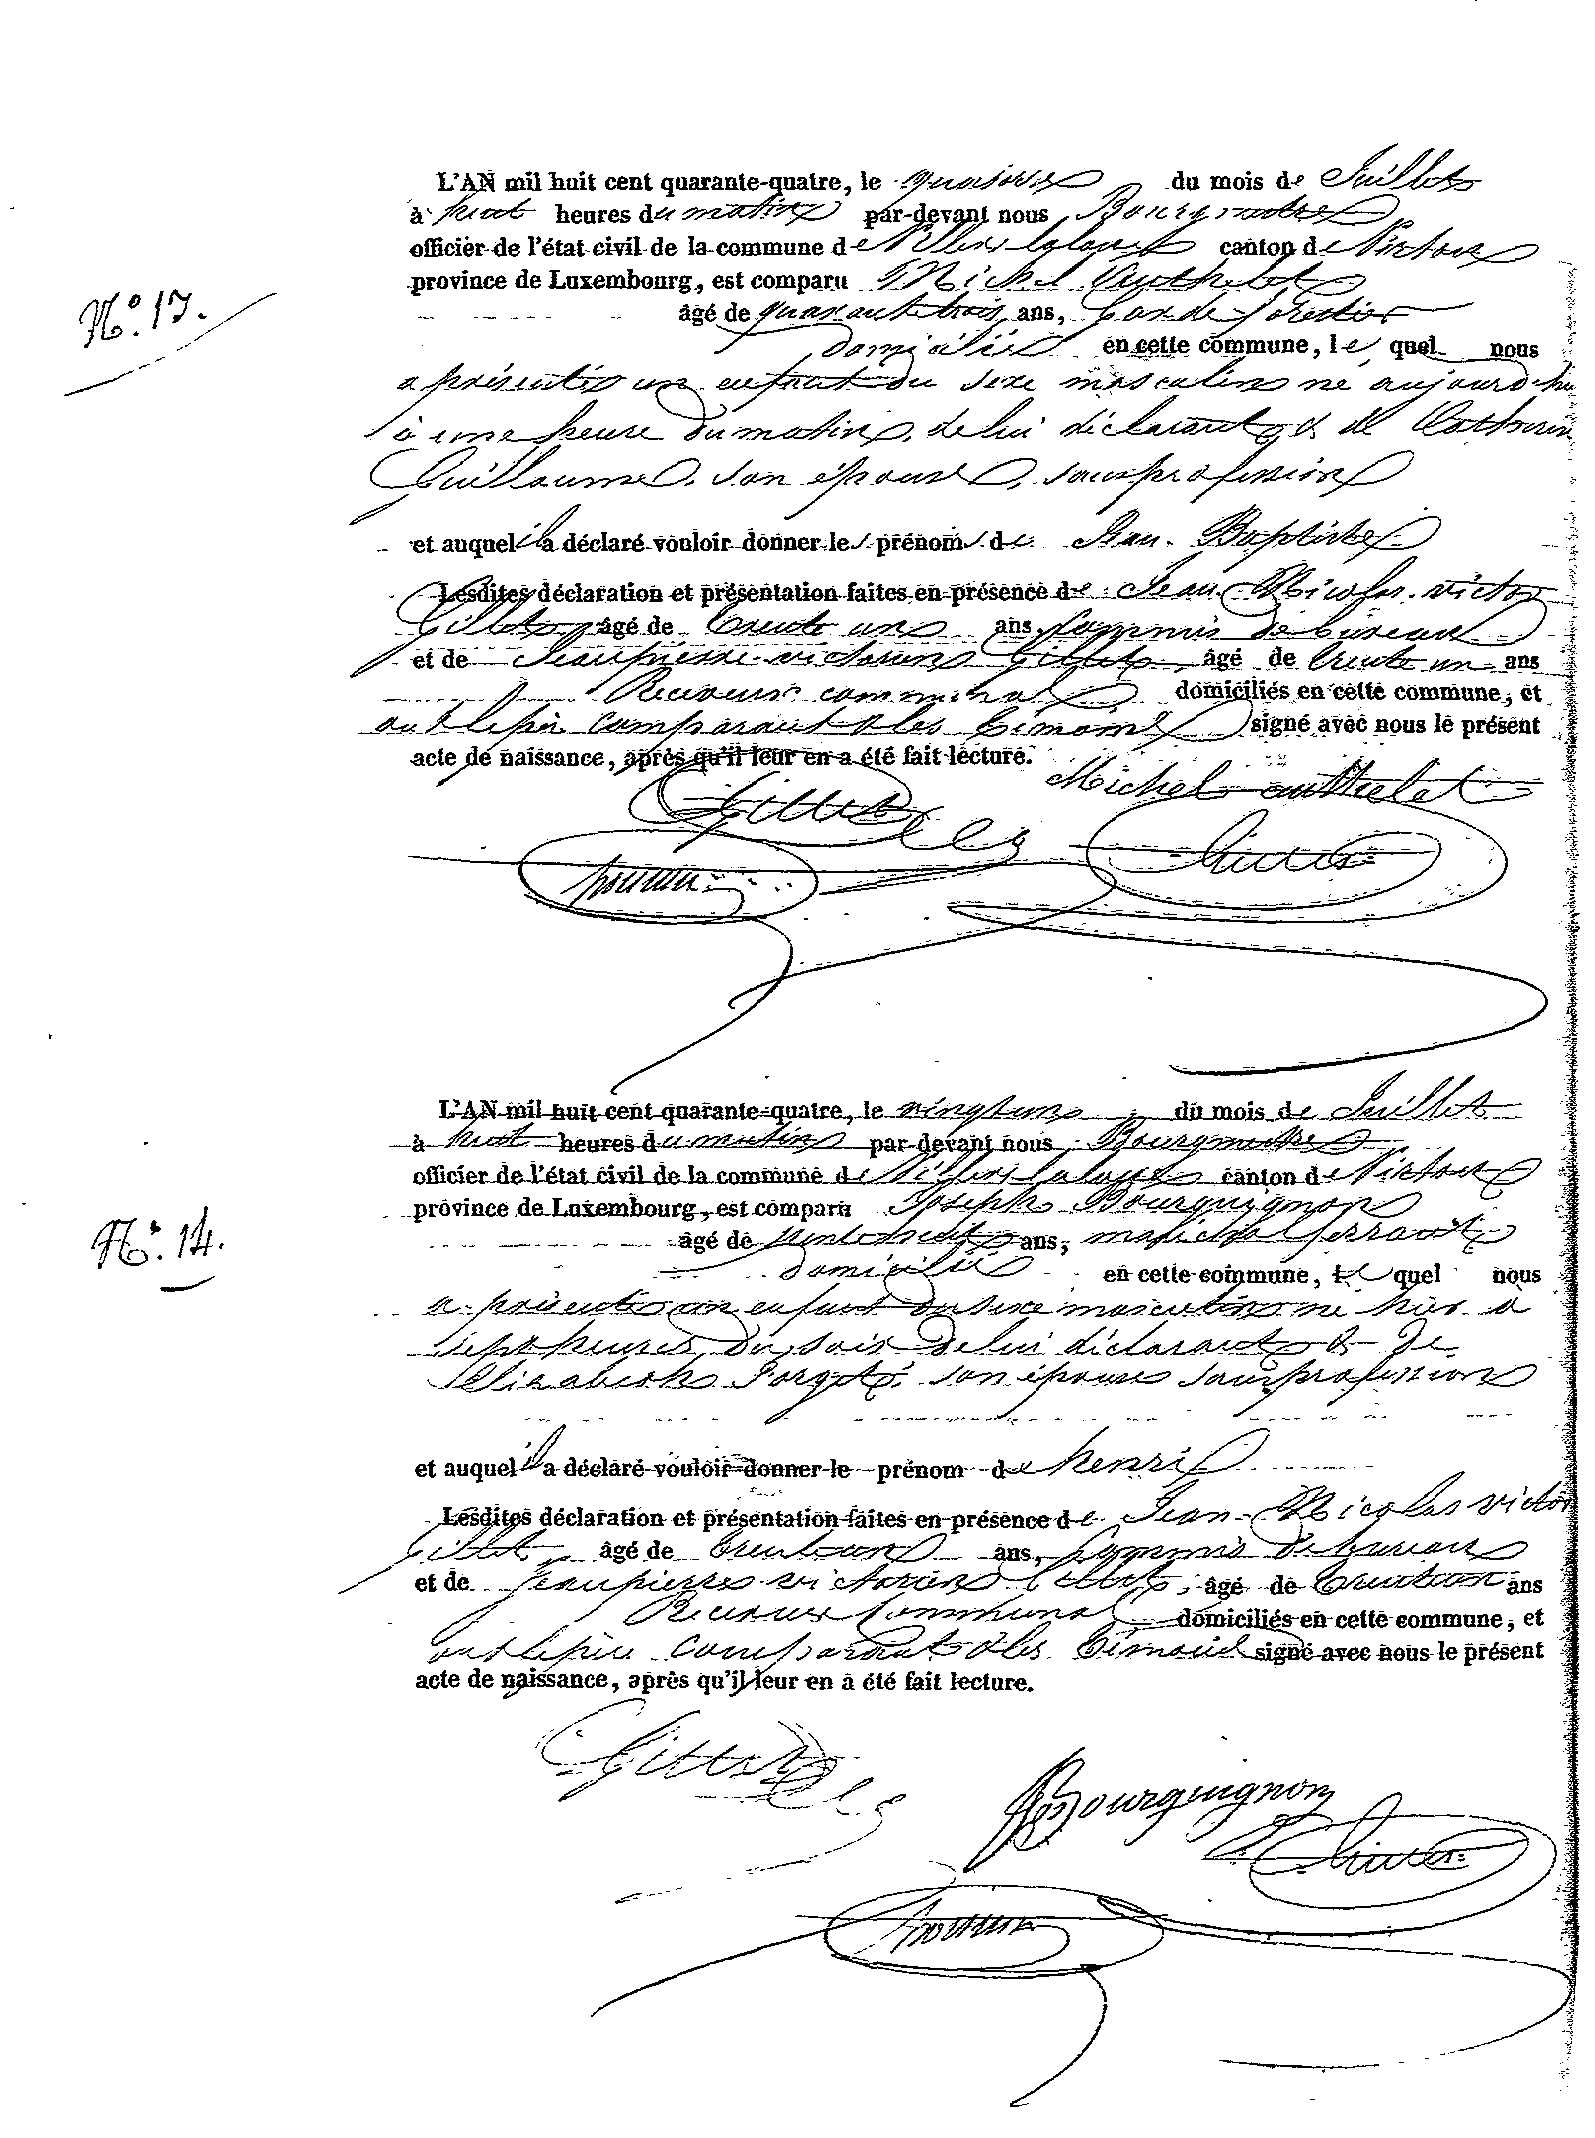 L'AN mil huit cent quarante-quatre, le quatorze du mois de Juillet
à huit heures du matin par-devant nous Bourgmestre
officier de l'état civil de la commune de Villers laloue canton de Virton
province de Luxembourg, est comparu Michel Authelet
N.° 13.
âgé de quarante trois ans, Garde forestier
domicilié en cette commune, le quel nous
a présenté un enfant du sexe masculin né aujourd'hui
à une heure du matin, de lui déclarant & de Catherine
Guillaume, son épouse, sans profession
et auquel il a déclaré vouloir donner les prénoms de Jean-Baptiste
Lesdites déclaration et présentation faites en présence de Jean-Nicolas-victor
Gillet âgé de trente un ans, commis de bureau
et de Jean pierre victorien Gillet, âgé de trente un ans
Receveur communal domiciliés en cette commune, et
ont le père comparant & les témoins signé avec nous le présent
acte de naissance, après qu'il leur en a été fait lecture.
Michel authelet
Gillet
L'AN mil huit cent quarante-quatre, le vingt un du mois de Juillet
à huit heures du matin par-devant nous Bourgmestre
officier de l'état civil de la commune de Villers laloue canton de Virton
province de Luxembourg, est comparu Joseph Bourguignon
N.° 14.
âgé de trente huit ans, maréchal ferrant
domicilié en cette commune, le quel nous
a présenté un enfant du sexe masculin né hier à
sept heures du soir de lui déclarant & de
Elisabeth Forget, son épouse sans profession
et auquel il a déclaré vouloir donner le prénom de henri
Lesdites déclaration et présentation faites en présence de Jean-Nicolas victor
Gillet, âgé de trente un ans, commis de bureau
et de Jean pierre victorien Gillet, âgé de trente un ans
Receveur Communal domiciliés en cette commune, et
ont le père comparant & les témoins signé avec nous le présent
acte de naissance, après qu'il leur en a été fait lecture.
Gillet
Bourguignon